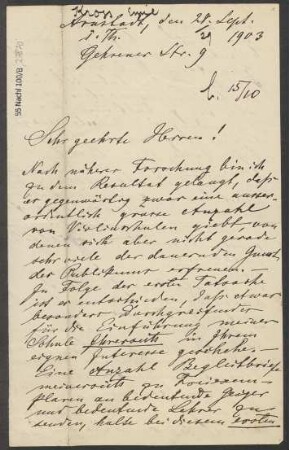 Kross, Emil
Arnstadt, den 28. Sept.
i. Th. 1903
Gehrener Str. 9
b. 15/10
55 Nachl 100/B
Sehr geehrte Herren!
Nach näherer Forschung bin ich
zu dem Resultat gelangt, dass
es gegenwärtig zwar eine ausser-
ordentlich grosse Anzahl
von Violinschulen giebt, von
denen sich aber nicht gerade
sehr viele der dauernden Gunst
des Publikums erfreuen.
In Folge der ersten Tatsache
ist es entschieden, dass etwas
besonders Durchgreifendes
für die Einführung meiner
Schule Ihrerseits in Ihrem
eignen Interesse geschehe.
Eine Anzahl Begleitbriefe
meinerseits zu
plaren an bedeutende Geiger
und bedeutende Lehrer zu
senden, halte bei diesem ersten